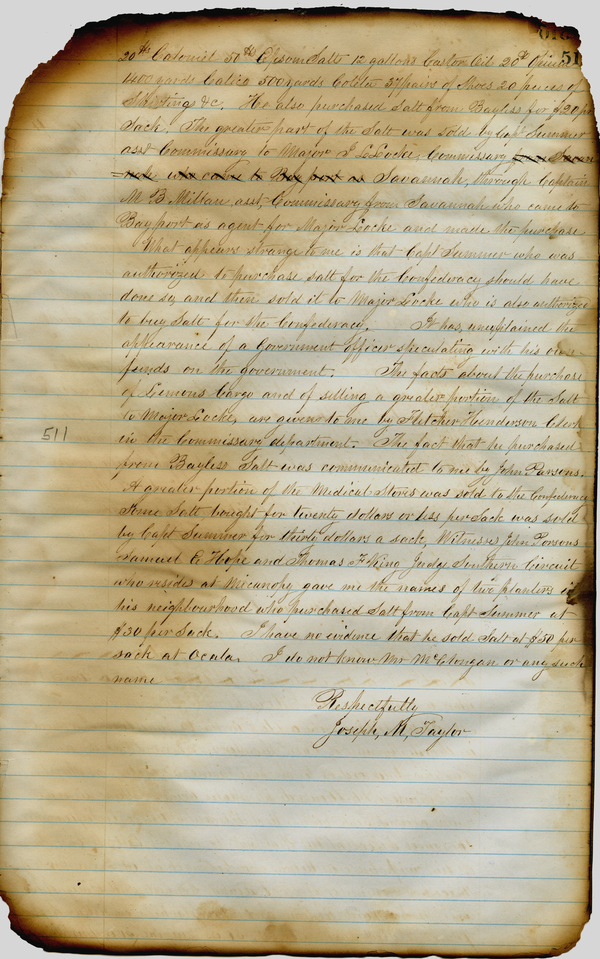 51
20 lbs Calomel 50 lbs Epsom Salts 12 gallons Castor Oil 20
1400 yards Calico 500 yards 37 pairs of Shoes 20 pieces of
&c. He also purchased Salt from Bayless for $20 pr
Sack. The greater part of the Salt was sold by Capt Summer
asst Commissary to Major J L Locke, Commissary
who came to Bay port as Savannah, through Captain
M B Millan, asst, Commissary from Savannah who came to
Bayport as agent for Major Locke and made the purchase
What appears strange to me is that Capt Summer who was
authorized to purchase salt for the Confederacy should have
done so, and then sold it to Major Locke who is also authorized
to buy Salt for the Confederacy. It has, unexplained the
appearance of a Government officer speculating with his own
funds on the government. The facts about the purchase
of Lemons Cargo and of selling a greater portion of the Salt
to Major Locke, are given to me by Fletcher Henderson Clerk
511
in the Commissary department. The fact that he purchased
from Bayless Salt was communicated to me by John Parsons.
A greater portion of the Medical Stores was sold to the Confederacy
Some Salt bought for twenty dollars or less per Sack was sold
by Capt Summer for thirty dollars a sack, Witnesses John Parsons
Samuel E Hope and Thomas F King Judge Southern Circuit
who resides at Micanopy gave me the names of two planters in
his neighbourhood who purchased Salt from Capt Summer at
$30 per Sack. I have no evidence that he sold Salt at $50 per
sack at Ocala. I do not know Mr McClongan or any such
name
Respectfully
Joseph, M, Taylor